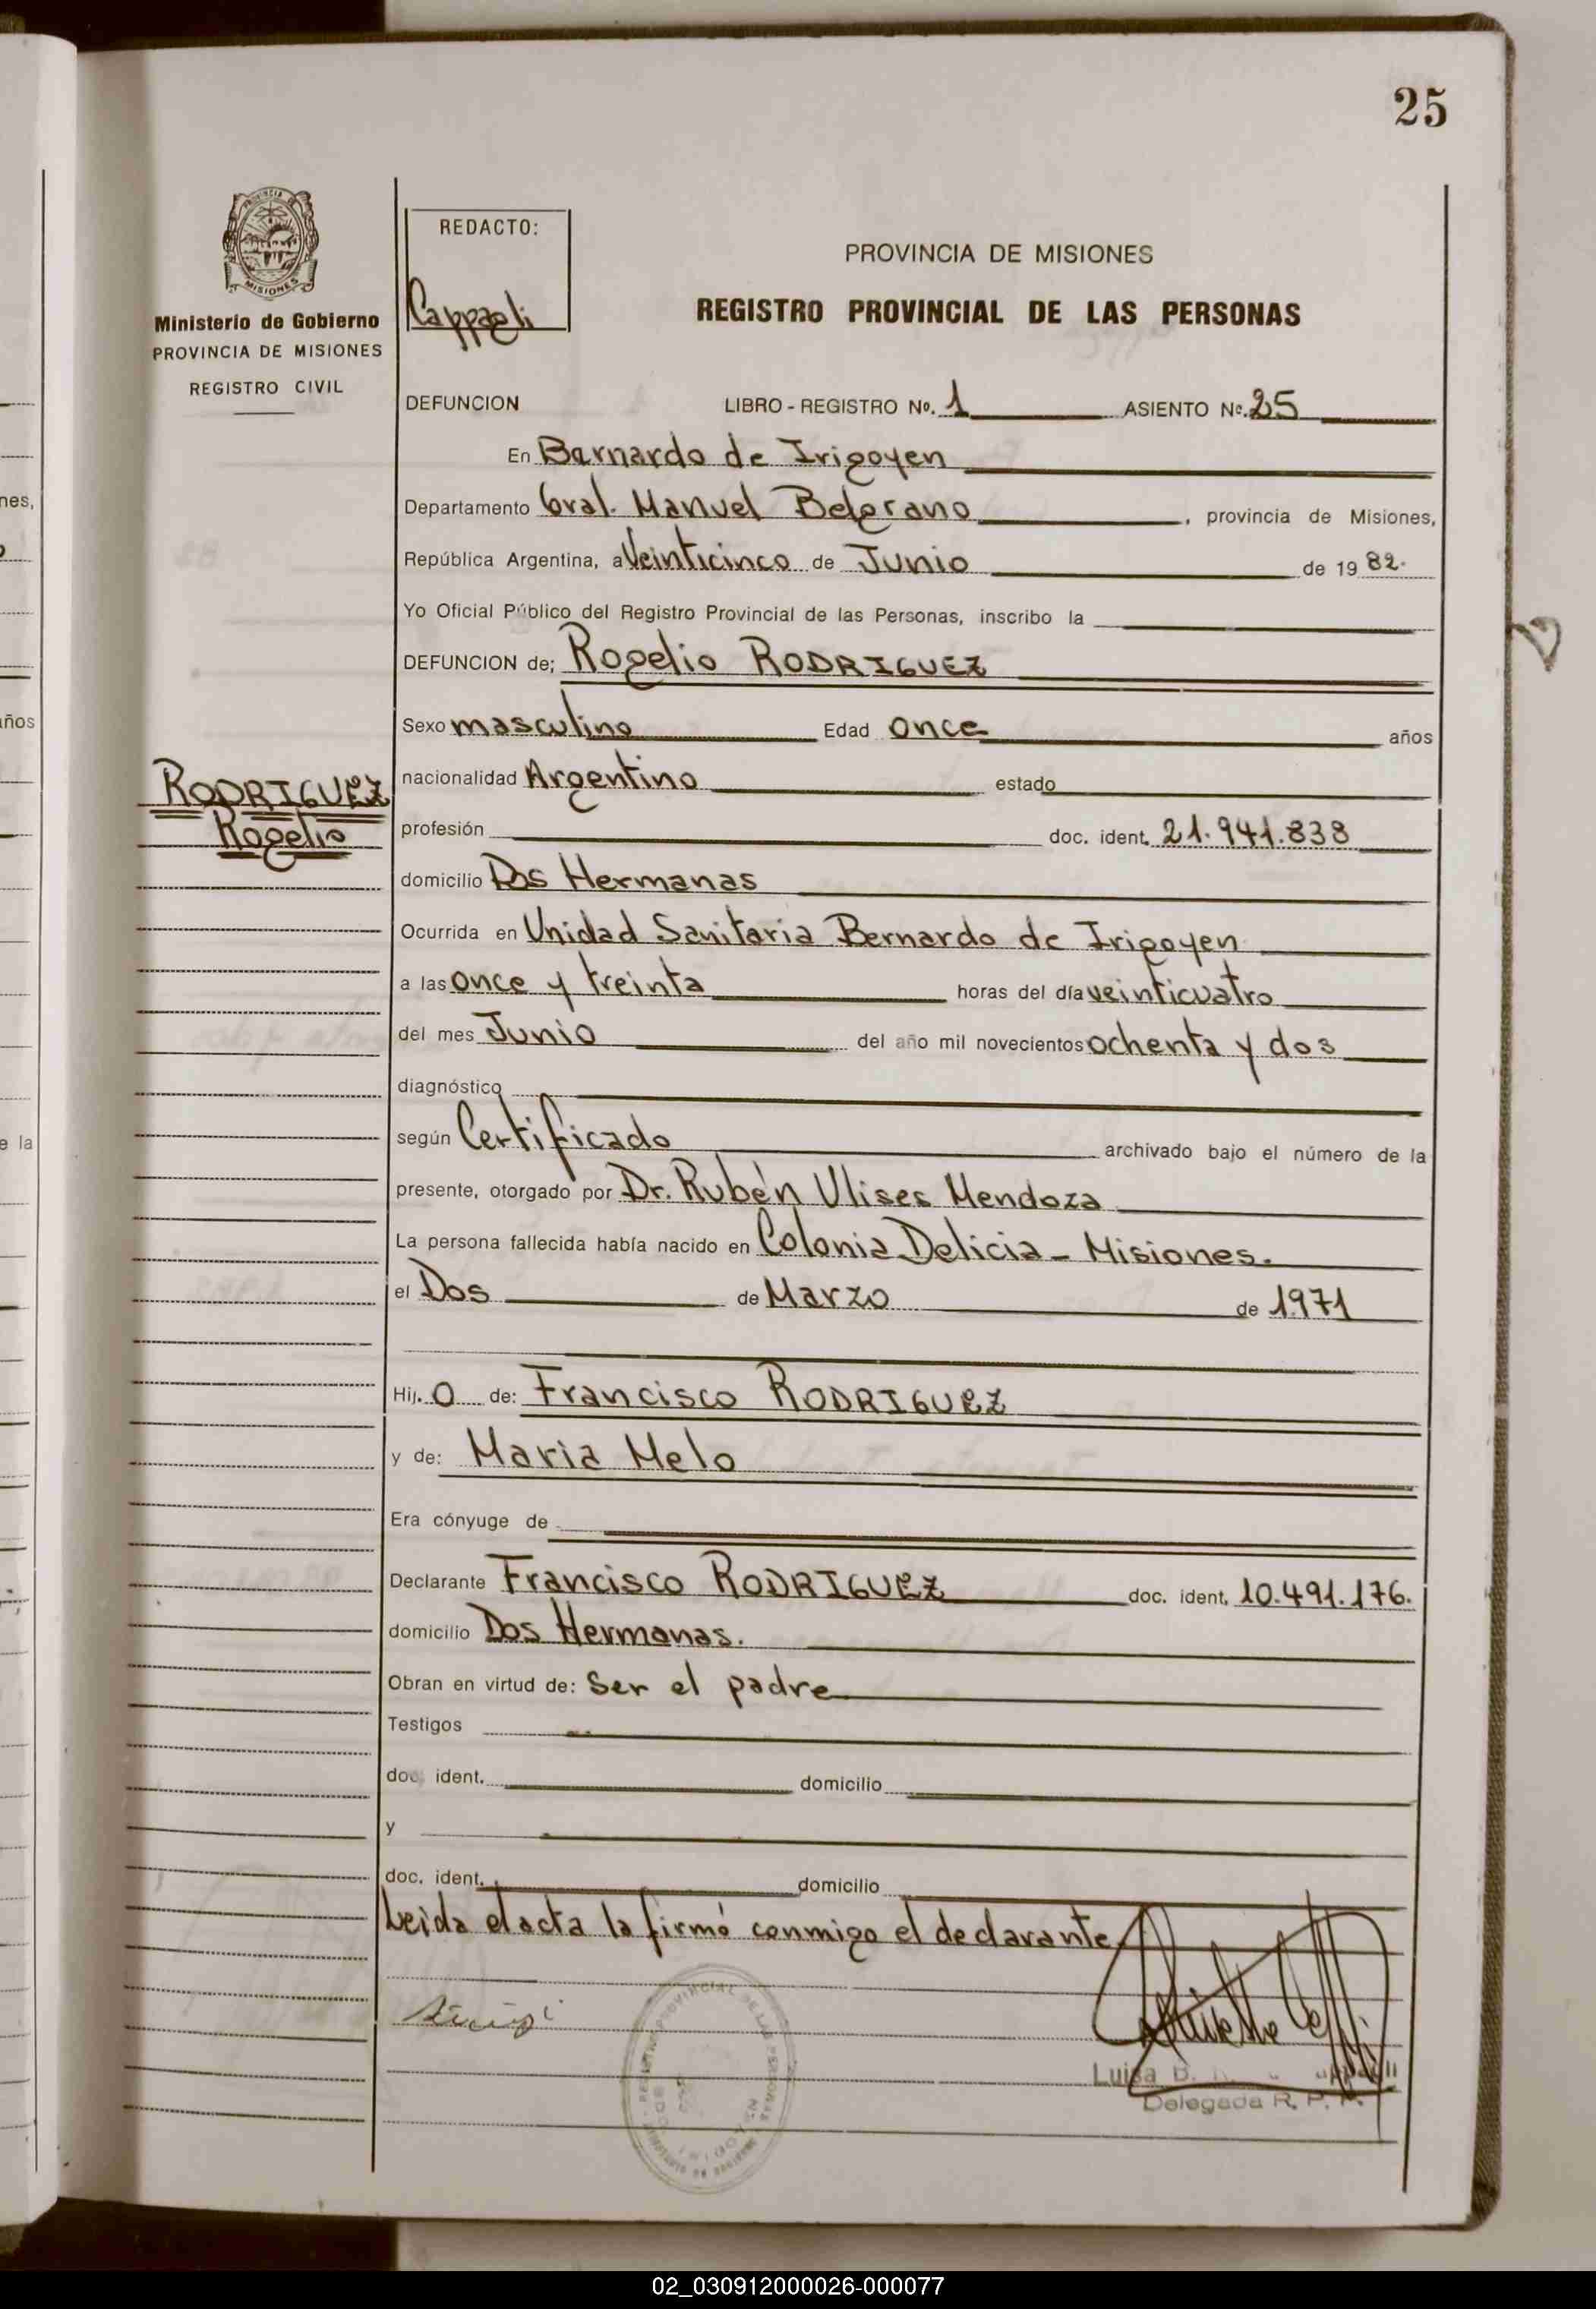 25
PROVINCIA DE
MISIONES
Ministerio de Gobierno
PROVINCIA DE MISIONES
REGISTRO CIVIL
REDACTO:
Cappaeli
PROVINCIA DE MISIONES
REGISTRO PROVINCIAL DE LAS PERSONAS
DEFUNCION LIBRO - REGISTRO Nº. 1 ASIENTO Nº. 25
En Bernardo de Irigoyen
Departamento Gral. Manuel Belgrano, provincia de Misiones,
República Argentina, a Veinticinco de Junio de 19 82.
Yo Oficial Público del Registro Provincial de las Personas, inscribo la
DEFUNCION de; Rogelio RODRIGUEZ
Sexo masculino Edad once años
nacionalidad Argentino estado
RODRIGUEZ
Rogelio
profesión doc. ident. 21.941.838
domicilio Dos Hermanas
Ocurrida en Unidad Sanitaria Bernardo de Irigoyen
a las once y treinta horas del día veinticuatro
del mes Junio del año mil novecientos ochenta y dos
diagnóstico
según Certificado archivado bajo el número de la
presente, otorgado por Dr. Rubén Ulises Mendoza
La persona fallecida había nacido en Colonia Delicia - Misiones.
el Dos de Marzo de 1971
Hij. O de: Francisco RODRIGUEZ
y de: Maria Melo
Era cónyuge de
Declarante Francisco RODRIGUEZ doc. ident. 10.491.176.
domicilio Dos Hermanas.
Obran en virtud de: Ser el padre
Testigos
doc. ident. domicilio
y
doc. ident. domicilio
Leida el acta la firmó conmigo el declarante
Luisa B.
Delegada R. P. P.
nes,
años
e la
02_030912000026-000077